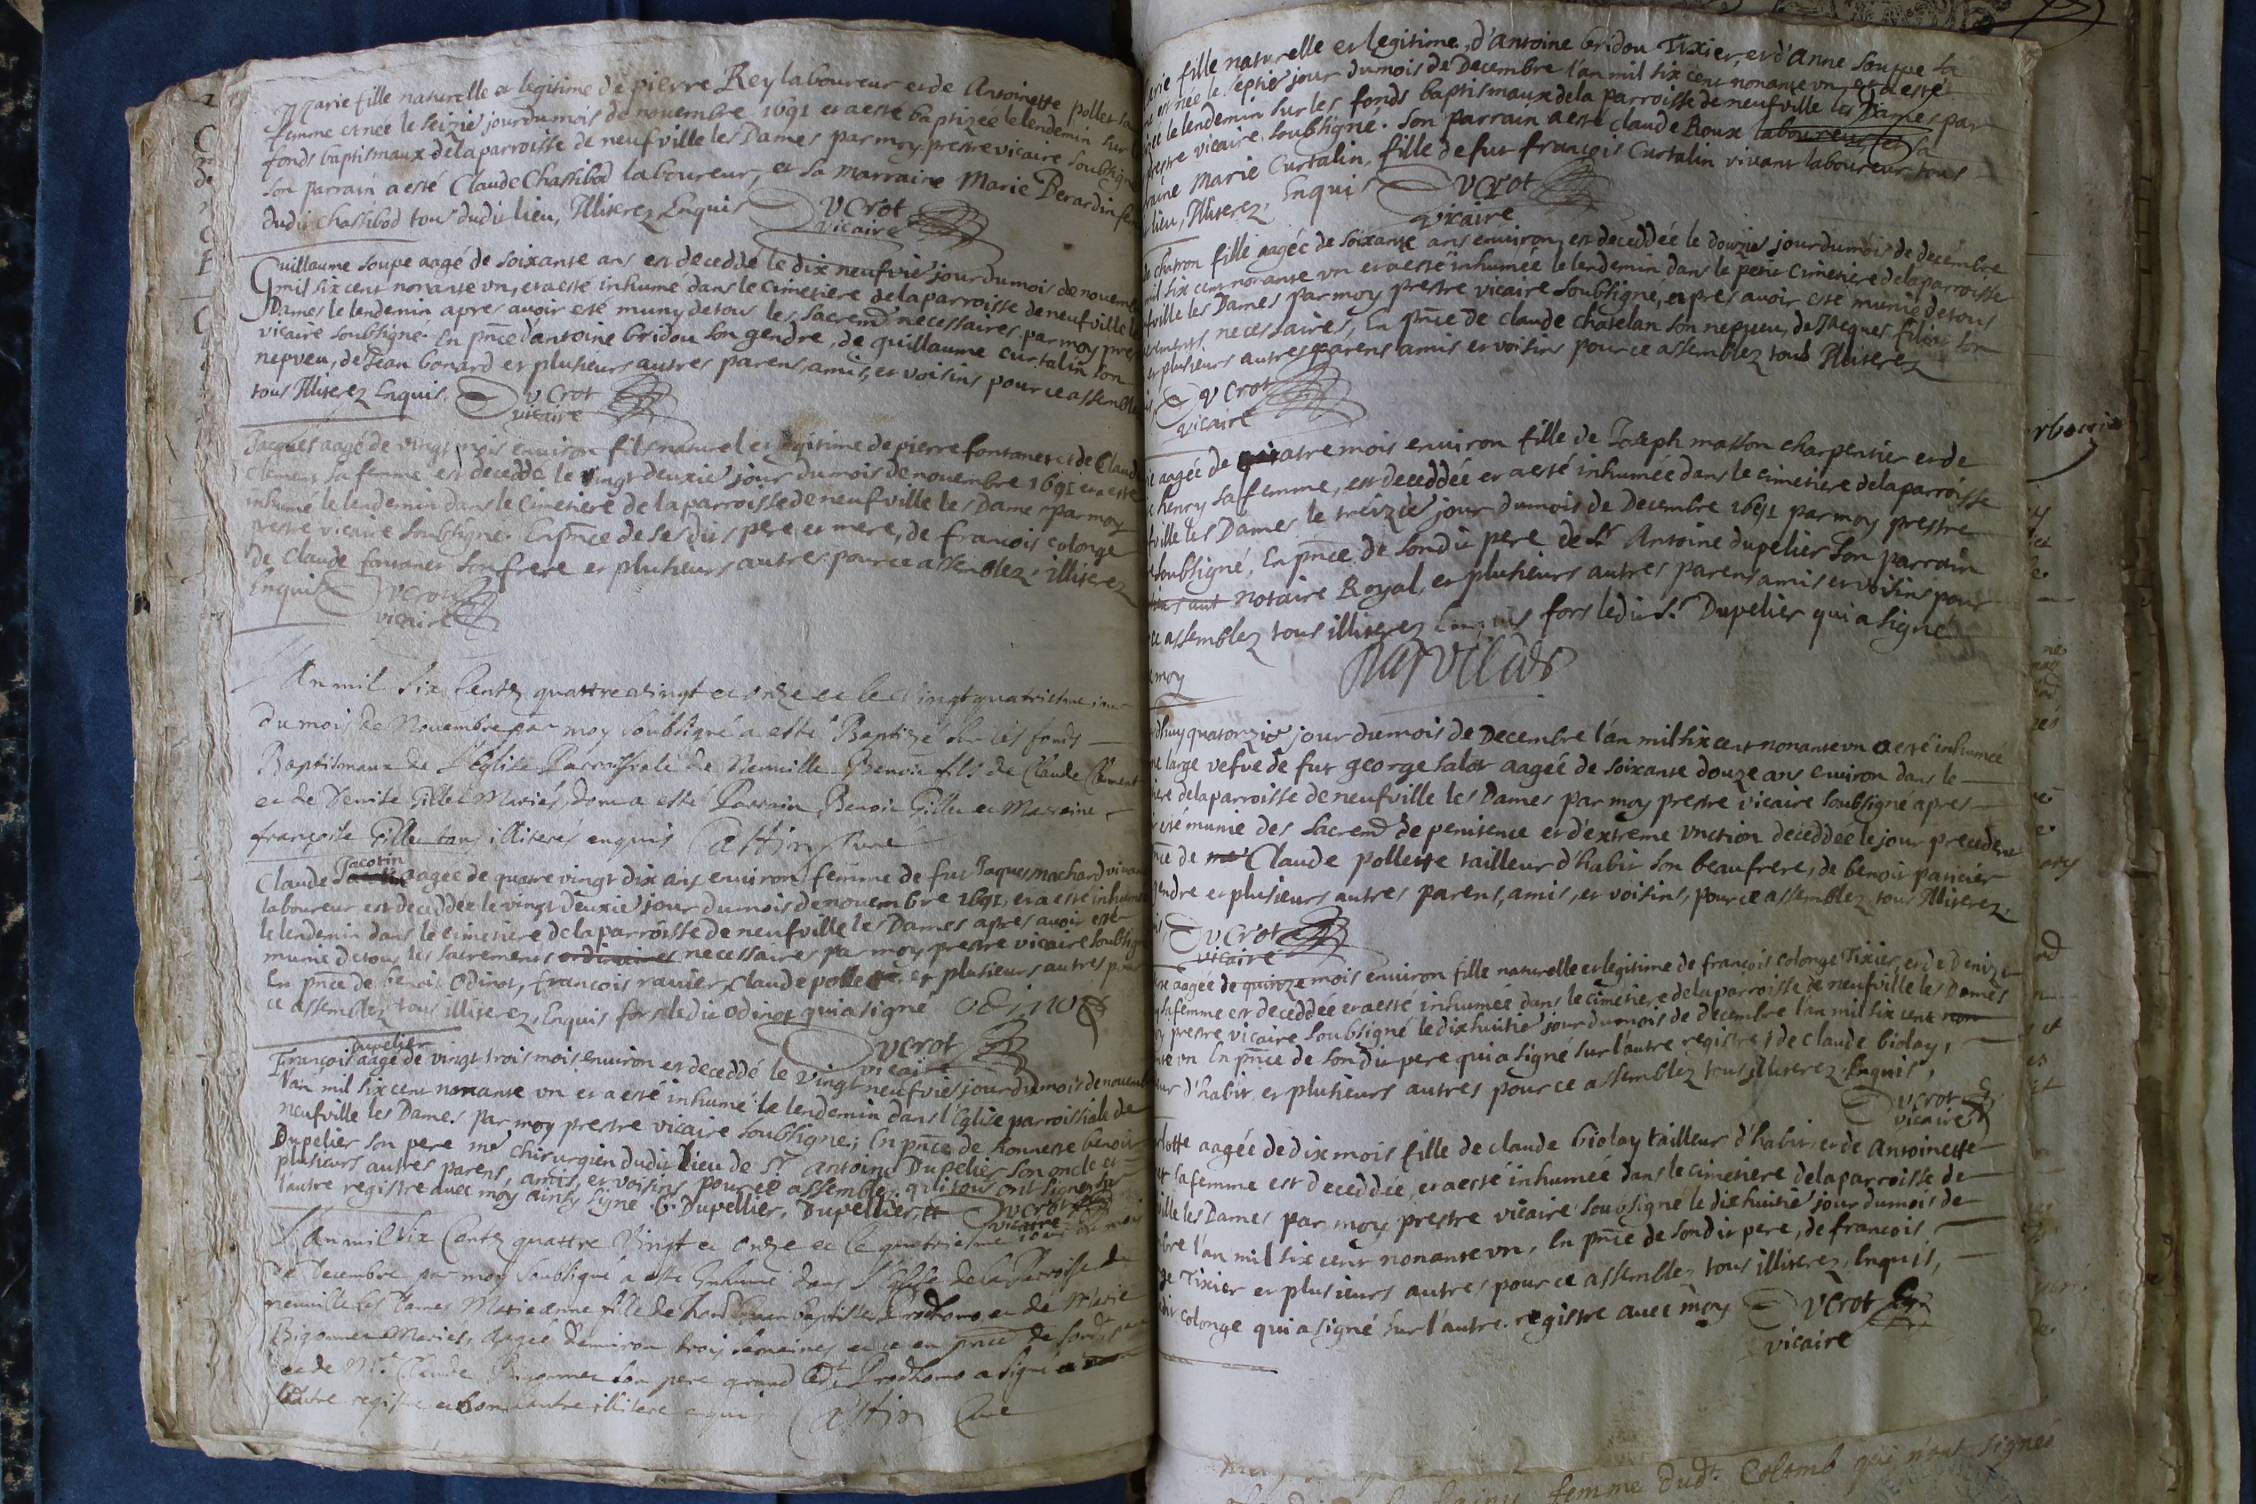 Marie fille naturelle et legitime de pierre Rey laboureur et de Antoinette pollet sa
femme est née le seizie jour du mois de novembre 1691 et a esté baptizée le lendemin sur
fonds baptismaux de la parroisse de neufville les Dames par moy prestre vicaire soubsigné
son parrain a esté Claude Chassibod laboureur, et sa marraine Marie Berardin
dudit chassibod tous dudit lieu, Illiterez Enquis Ducrot
vicaire
Guillaume soupe aagé de soixante ans est deceddé le dix neufvie jour du mois de novem
mil six cent nonante vn, et a esté inhumé dans le cimetiere de la parroisse de neufville
Dames le lendemin apres avoir esté muny de tous les sacremts necessaires par moy pres
vicaire soubsigné. En pnce d'antoine bridou son gendre, de guillaume curtalin son
nepveu, de Jean bonard et plusieurs autres parens, amis, et voisins pour ce assemble
tous Illiterez Enquis. Ducrot
vicaire
Jacques aagé de vingt mois environ fils naturel et legitime de pierre fontanet et de Claud
Clement sa femme est deceddé le vingt deuxie jour du mois de novembre 1691 et a esté
inhumé le lendemin dans le cimetiere de la parroisse de neufville les Dames par moy
prestre vicaire soubsigné. En pnce de ses dits pere et mere, de francois colonge
de Claude fontanet son frere et plusieurs autres pour ce assemblez. Illiterez
Enquis Ducrot
vicaire
L'an mil six Centz quattre vingt et onze et le vingt quatriesme jour
du mois de Novembre par moy soubsigné a esté Baptizé sur les fonds
Baptismaux de l'Eglise Parroissiale de Neuville Benoit fils de Claude Clement
et de Denise Gillet Mariés, dont a esté Parrain Benoit Gillet et Marraine
françoise Gillet tous illiterés enquis
Jacotin
Claude aagée de quatre vingt dix ans environ femme de fut Jaques machard vivant
laboureur est deceddée le vingt deuxie jour du mois de novembre 1691, et a esté inhumée
le lendemin dans le cimetiere de la parroisse de neufville les Dames apres avoir esté
munie de tous les sacrements ordinaires necessaires par moy prestre vicaire soubsig
En pnce de benoit Odinot, francois ravier, Claude pollet et plusieurs autres pour
ce assemblez, tous illiterez, Enquis fors ledit Odinot qui a signé odinot
Ducrot
vicaire
Dupelier
François aagé de vingt trois mois environ est deceddé le vingt neufvie jour du mois de novemb
l'an mil six cent nonante vn et a esté inhumé le lendemin dans l'Eglise parroissiale de
neufville les Dames par moy prestre vicaire soubsigné; En pnce de honneste benoit
Dupelier son pere me chirurgien dudit lieu de Sr antoine Dupelier son oncle et
plusieurs autres parens, amis, et voisins pour ce assemblez qui tous ont signé sur
l'autre registre avec moy ainsy signé B. Dupellier, Dupellier, Ducrot
vicaire
L'an mil six Centz quattre Vingt et onze et le quatriesme jour du mois
de Decembre par moy soubsigné a esté Enhumé dans l'Eglise de la Parroisse de
neuville les Dames Marieanne fille de Jean baptiste Prodhons et de Marie
Bigonnet Mariés, Aagée d'environ trois semaines et ce en pnce de sondt pere
et de Claude Bigonnet son pere grand ledt Prodhons a signé
l'autre registre et non l'autre illitere enquis
rie fille naturelle et legitime, d'Antoine bridou Tixier, et d'Anne souppe sa
est née le septie jour du mois de Decembre l'an mil six cent nonante vn, et a esté
le lendemin sur les fonds baptismaux de la parroisse de neufville les Dames par
prestre vicaire soubsigné. Son parrain a esté Claude Roux laboureur et sa
raine Marie Curtalin, fille de fut françois Curtalin vivant laboureur tous
lieu, Illiterez, Enquis Ducrot
vicaire
chatron fille aagée de soixante ans environ, est deceddée le douzie jour du mois de decembre
mil six cent nonante vn et a esté inhumée le lendemin dans le petit Cimetiere de la parroisse
ville les Dames par moy prestre vicaire soubsigné, apres avoir esté munie de tous
necessaires, En pnce de claude chatelan son nepveu, de Jacques filiat son
et plusieurs autres parens amis et voisins pour ce assemblez tous Illiterez
Ducrot
vicaire
aagée de quatre mois environ fille de Joseph masson charpentier et de
henry sa femme, est deceddée et a esté inhumée dans le cimetiere de la parroisse
ville les Dames le treizie jour du mois de Decembre 1691 par moy prestre
soubsigné, En pnce de sondit pere de Sr Antoine dupelier son parrain
notaire Royal, et plusieurs autres parens amis et voisins pour
ce assemblez tous illiterez Enquis fors ledit Sr Dupelier qui a signé
moy
d'huy quatorzie jour du mois de Decembre l'an mil six cent nonante vn a esté inhumée
large vefve de fut george salot aagée de soixante douze ans environ dans le
de la parroisse de neufville les Dames par moy prestre vicaire soubsigné apres
esté munie des sacremts de penitence et d'extreme vnction deceddée le jour precedent
pnce de Claude pollette tailleur d'habit son beaufrere, de benoit pancier
gendre et plusieurs autres parens, amis, et voisins, pour ce assemblez tous Illiterez
Ducrot
vicaire
aagée de quinze mois environ fille naturelle et legitime de françois colonge Tixier, et de Denize
sa femme est deceddée et a esté inhumée dans le cimetiere de la parroisse de neufville les Dames
prestre vicaire soubsigné le dixhuitie jour du mois de decembre l'an mil six cent non
vn En pnce de sondit pere qui a signé sur l'autre registre, de claude biolay,
d'habit et plusieurs autres pour ce assemblez tous illiterez Enquis,
Ducrot
vicaire
lotte aagée de dix mois fille de claude biolay tailleur d'habit et de Antoinette
sa femme est deceddée, et a esté inhumée dans le cimetiere de la parroisse de
ville les Dames par moy prestre vicaire soubsigné le dixhuitie jour du mois de
bre l'an mil six cent nonante vn, En pnce de sondit pere, de françois
Tixier et plusieurs autres pour ce assemblez tous illiterez, Enquis,
colonge qui a signé sur l'autre registre avec moy Ducrot
vicaire
femme dudt. Colomb qui n'ont signés